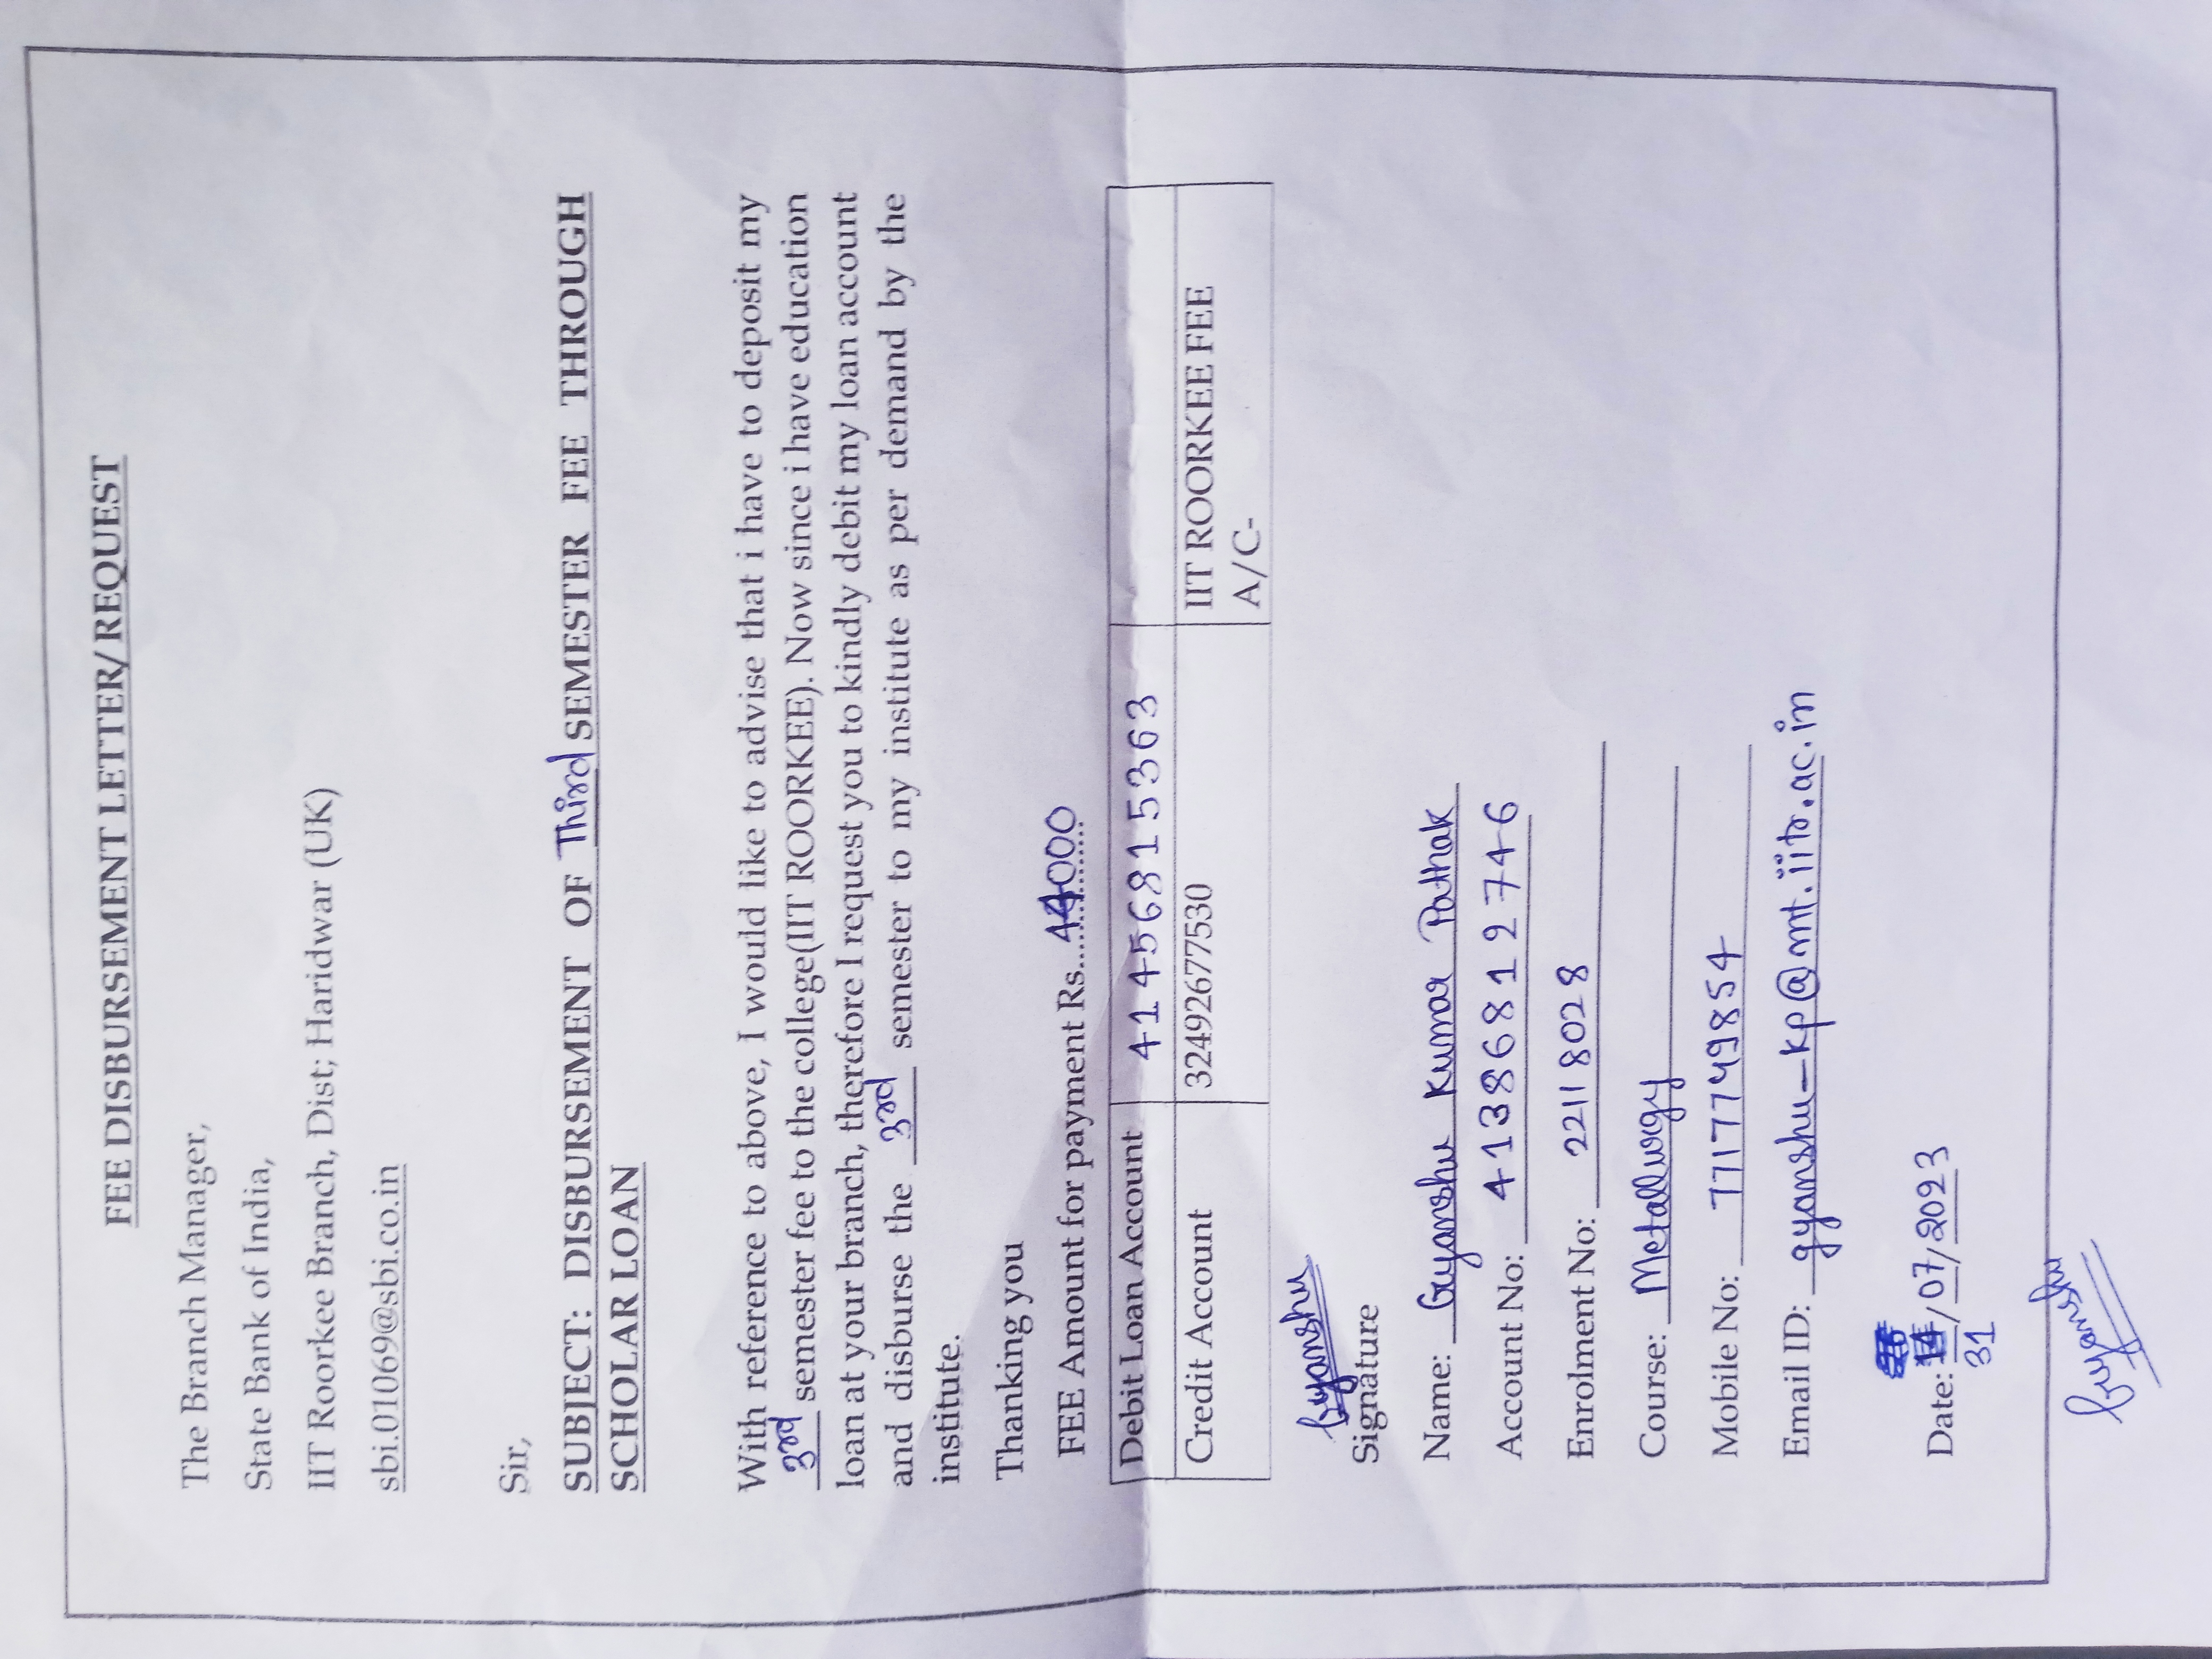 FEE DISBURSEMENT LETTER/REQUEST
The Branch Manager,
State Bank of India,
IIT Roorkee Branch, Dist; Haridwar (UK)
sbi.01069@sbi.co.in
Sir,
SUBJECT: DISBURSEMENT OF Third SEMESTER FEE THROUGH
SCHOLAR LOAN
With reference to above, I would like to advise that i have to deposit my
3rd semester fee to the college(IIT ROORKEE). Now since i have education
loan at your branch, therefore I request you to kindly debit my loan account
and disburse the 3rd semester to my institute as per demand by the
institute.
Thanking you
FEE Amount for payment Rs....44000
Debit Loan Account 41456815363
Credit Account 32492677530 IIT ROORKEE FEE
A/C-
Gyanshu
Signature
Name: Gyanshu Kumar Pathak
Account No: 41386812746
Enrolment No: 22118028
Course: Metallurgy
Mobile No: 7717749854
Email ID: gyanshu_kp@mt.iitr.ac.in
Date: /07/2023
31
Gyanshu